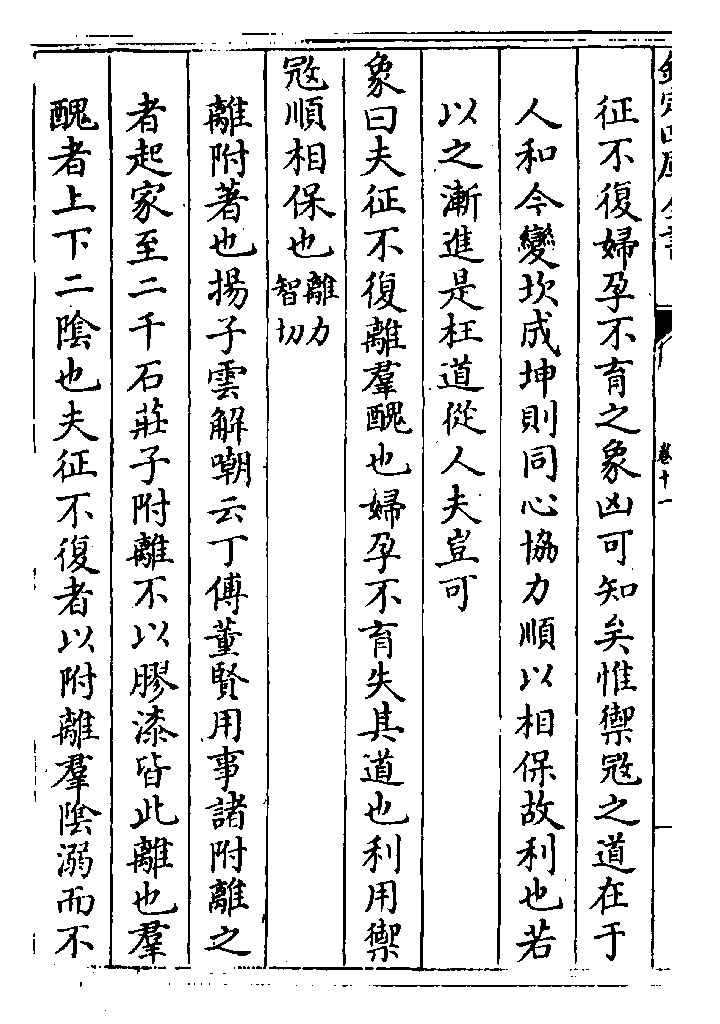 欽定四庫全書
卷十一
征不復婦孕不育之象凶可知矣惟禦㓂之道在于
人和今變坎成坤則同心協力順以相保故利也若
以之漸進是枉道從人夫豈可
象曰夫征不復離羣醜也婦孕不育失其道也利用禦
㓂順相保也離力智切
離附著也揚子雲解嘲云丁傅董賢用事諸附離之
者起家至二千石莊子附離不以膠漆皆此離也羣
醜者上下二隂也夫征不復者以附離羣隂溺而不